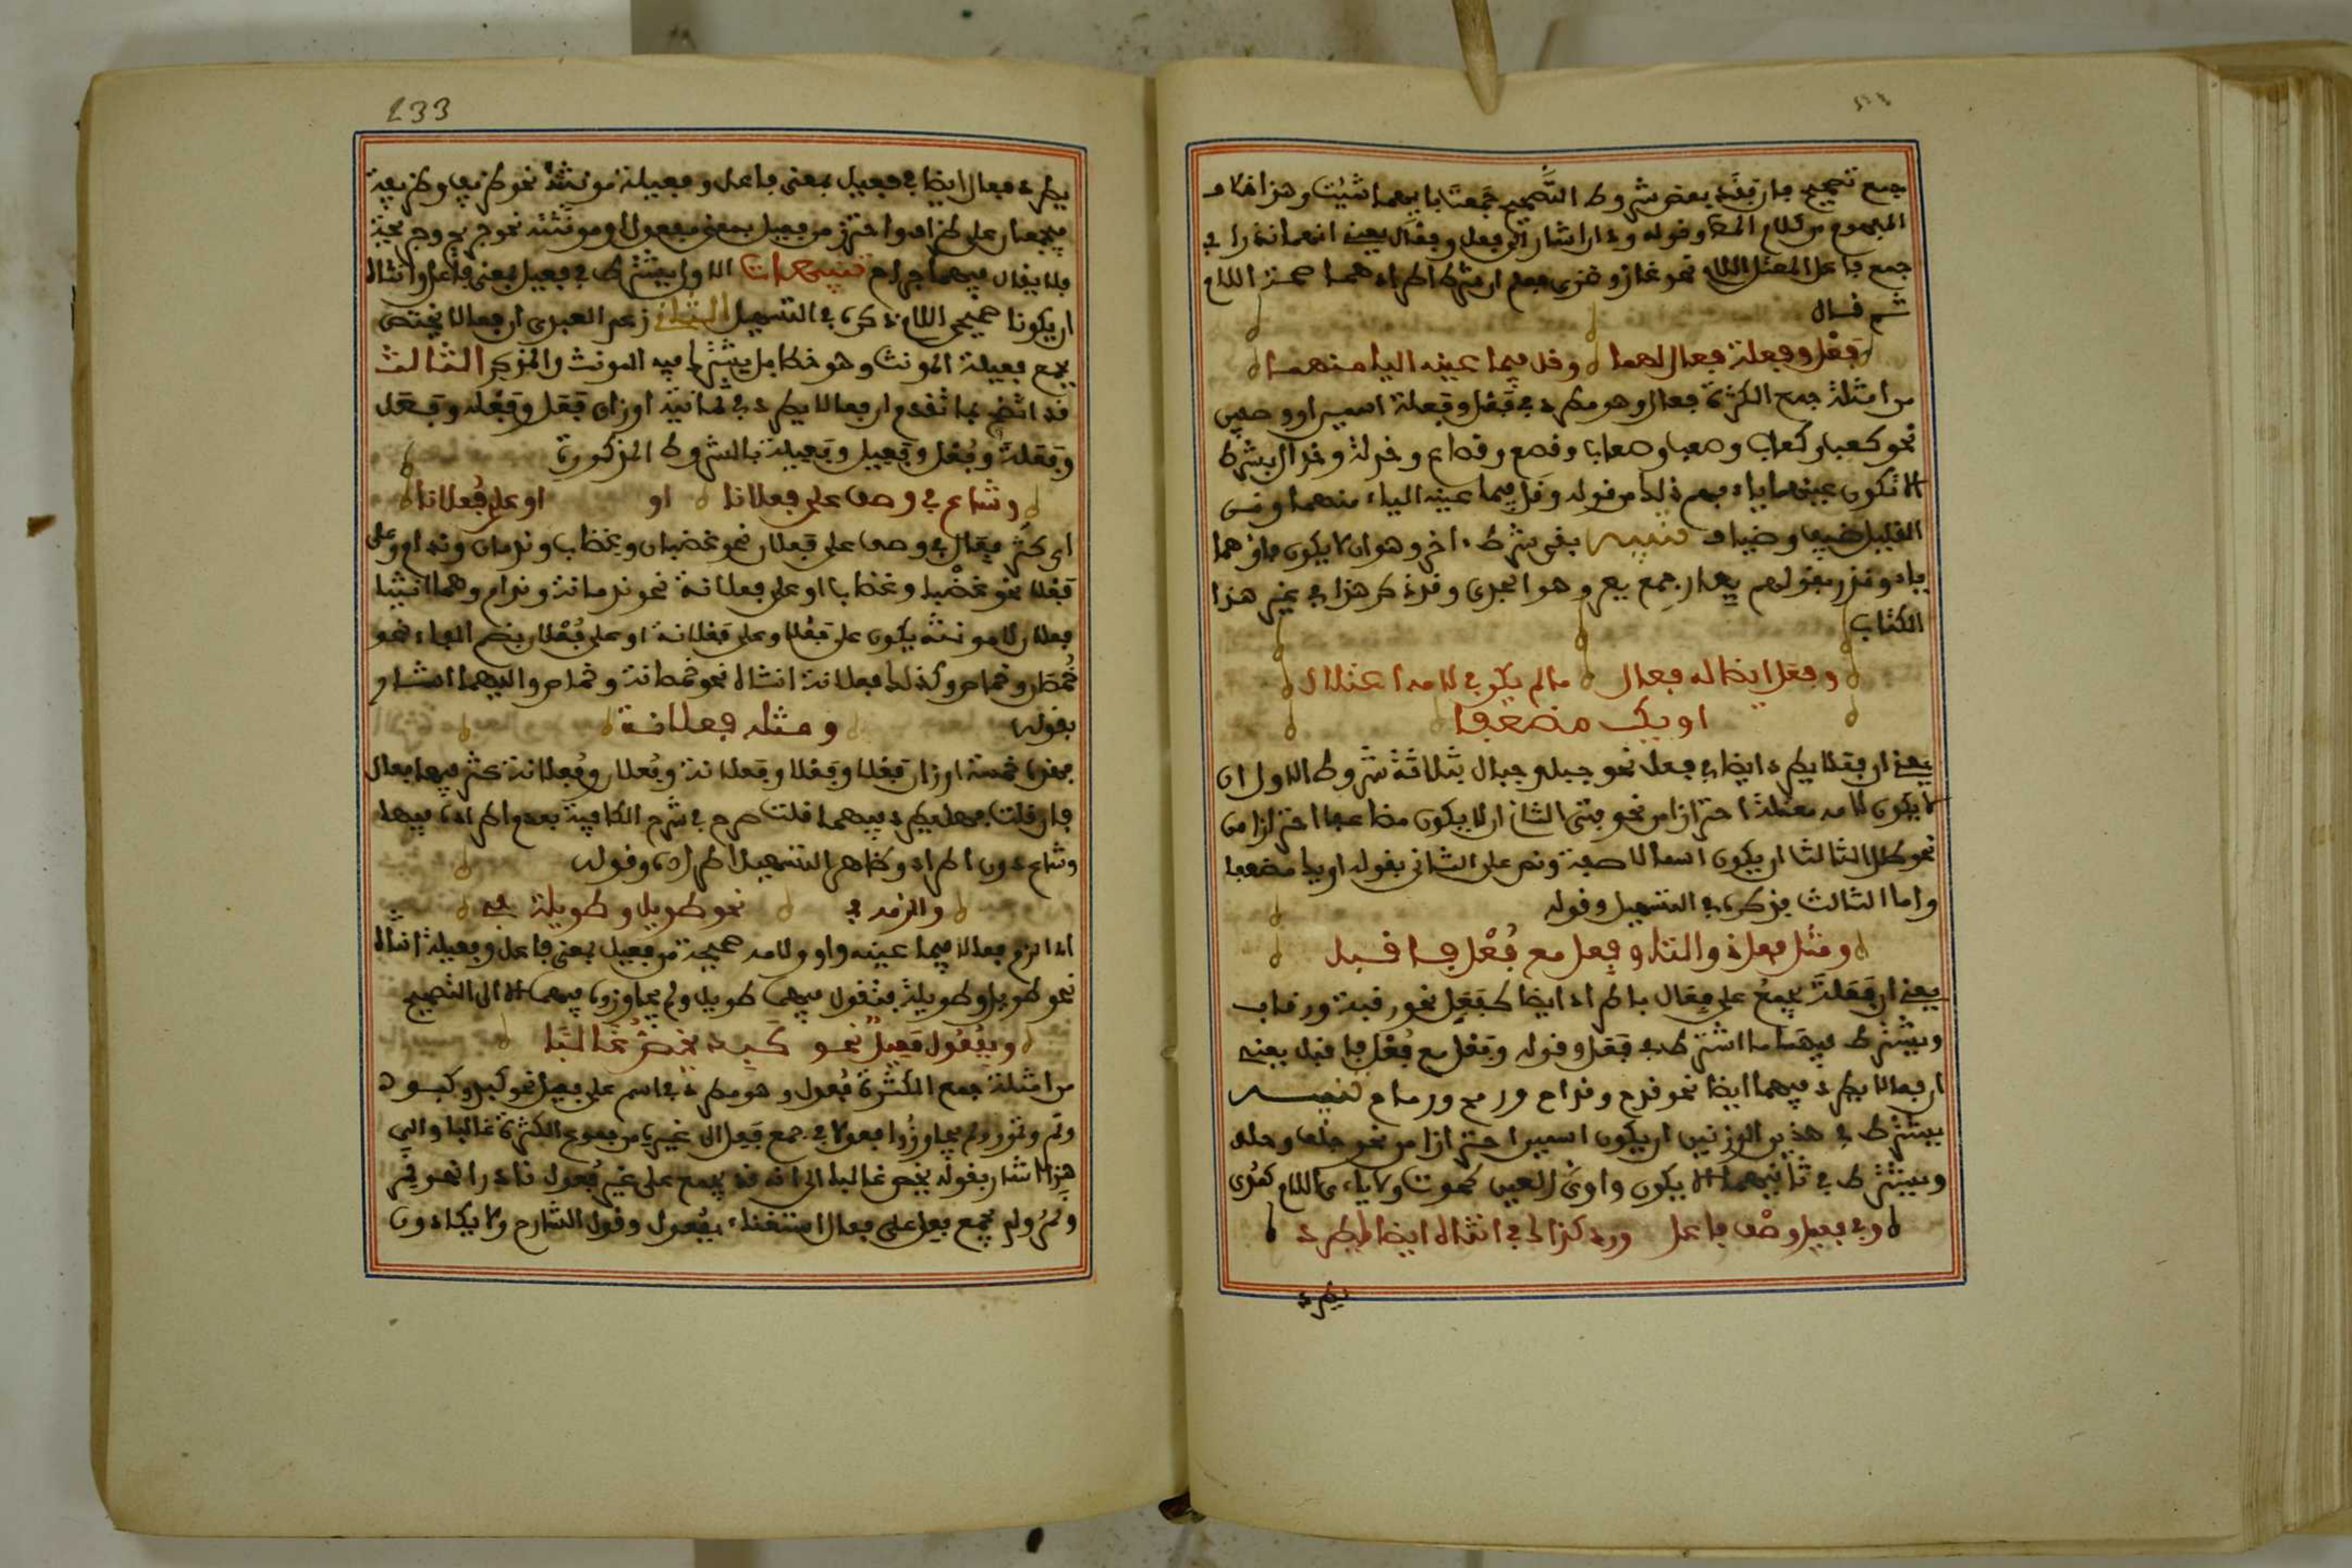 جمع تصحيح فإن فقد بعض شروط التصحيح جمعتا بايهما شئت وهذا خلاف
المفهوم من كلام المص وقوله وذان اشار الى فعل وفعال يعنى انهما ندرا في
جمع فاعل المعتل اللام نحو غاز وغزى فعلم ان شرط اطرادهما صحة اللام
ثم قال
فعل وفعلة فعال لهما وقل فيما عينه اليا منهما
من امثلة جمع الكثرة فعال وهو مطرد في فعل وفعلة اسمين او وصفين
نحو كعب وكعاب وصعب وصعاب وقصعة وقصاع وخدلة وخدال بشرط
الا تكون عينهما ياء فهم ذلك من قوله وقل فيما عينه الياء منهما ومن
القليل ضيف وضياف تنبيه بقي شرط اخر وهو ان لا يكون فاؤهما
ياء وندر قولهم يعار جمع يعر وهو الجدي وقد ذكر هذا في غير هذا
الكتاب
وفعل ايضا له فعال ما لم يكن في لامه اعتلال
او يك مضعفا
يعنى ان فعالا يطرد ايضا في فعل نحو جبل وجبال بثلاثة شروط الاول ان
لا يكون لامه معتلة احترازا من نحو فتى الثاني ان لا يكون مضاعفا احترازا من
نحو طلل الثالث ان يكون اسما لا صفة ونص على الثاني بقوله او يك مضعفا
واما الثالث فذكره في التسهيل وقوله
ومثل فعل ذو التا وفعل مع فعل فاقبل
يعنى ان فعلة يجمع على فعال باطراد ايضا كفعل نحو رقبة ورقاب
ويشترط فيهما ما اشترط في فعل وقوله وفعل مع فعل فاقبل يعنى
ان فعالا يطرد فيهما ايضا نحو قدح وقداح ورمح ورماح تنبيه
يشترط في هذين الوزنين ان يكون اسمين احترازا من نحو جلف وحلو
ويشترط في ثانيهما الا يكون واوي العين كحوت ولا ياءي اللام كمدي
وفي فعيل وصف فاعل ورد كذاك في انثاه ايضا اطرد
يطرد
233
يطرد فعال ايضا في فعيل بمعنى فاعل وفعيلة مونثه نحو ظريف وظريفة
فيجمعان على ظراف واحترز من فعيل بمعنى مفعول او مونثه نحو جريح وجريحة
فلا يقال فيهما جراح تنبيهات الاول يشترط في فعيل بمعنى فاعل وانثاه
ان يكونا صحيحي اللام ذكره في التسهيل الثاني زعم العبدي ان فعالا يختص
بجمع فعيلة المونث وهو خطا بل يشترك فيه المونث والمذكر الثالث
قد اتضح بما تقدم ان فعالا يطرد في ثمانية اوزان فعل وفعلة وفعل
وفعلة وفعل وفعيل وفعيلة بالشروط المذكورة
وشاع في وصف على فعلانا او او على فعلانا
اي كثر فعال في وصف على فعلان نحو غضبان وغضاب وندمان وندام وعلى
فعلى نحو غضبى وغضاب او على فعلانة نحو ندمانة وندام وهما انثيا
فعلان لان مونثه يكون على فعلى وعلى فعلانة او على فعلان بضم الفاء نحو
خمصان وخماص وكذلك فعلانة انثاه نحو خمصانة وخماص واليهما اشار
بقوله ومثله فعلانة
فهذه خمسة اوزان فعلى وفعلان وفعلانة وفعلان وفعلانة كثر فيها فعال
فان قلت فهل يطرد فيهما قلت صرح في شرح الكافية بعدم اطراده فيها
وشاع دون اطراد وظاهر التسهيل اطراده وقوله
والزمه في نحو طويل وطويلة تفي
اذا لزم فعالا فيما عينه واو ولامه صحيحة من فعيل بمعنى فاعل وفعيلة انثاه
نحو طويل وطويلة فتقول فيهما طويل ولم يجاوزوه فيهما الا الى التصحيح
وبفعول فعل نحو كبد يخص غالبا
من امثلة جمع الكثرة فعول وهو مطرد في اسم على فعل نحو كبد وكبود
ونمر ونمور ولم يجاوزوا فعولا في جمع فعل الى غيره من جموع الكثرة غالبا والى
هذا اشار بقوله يخص غالبا الى انه قد يجمع على غير فعول نادرا نحو نمر
ونمر ولم يجمع فعل على فعال استغناء بفعول وقول الشارح ولا يكادون